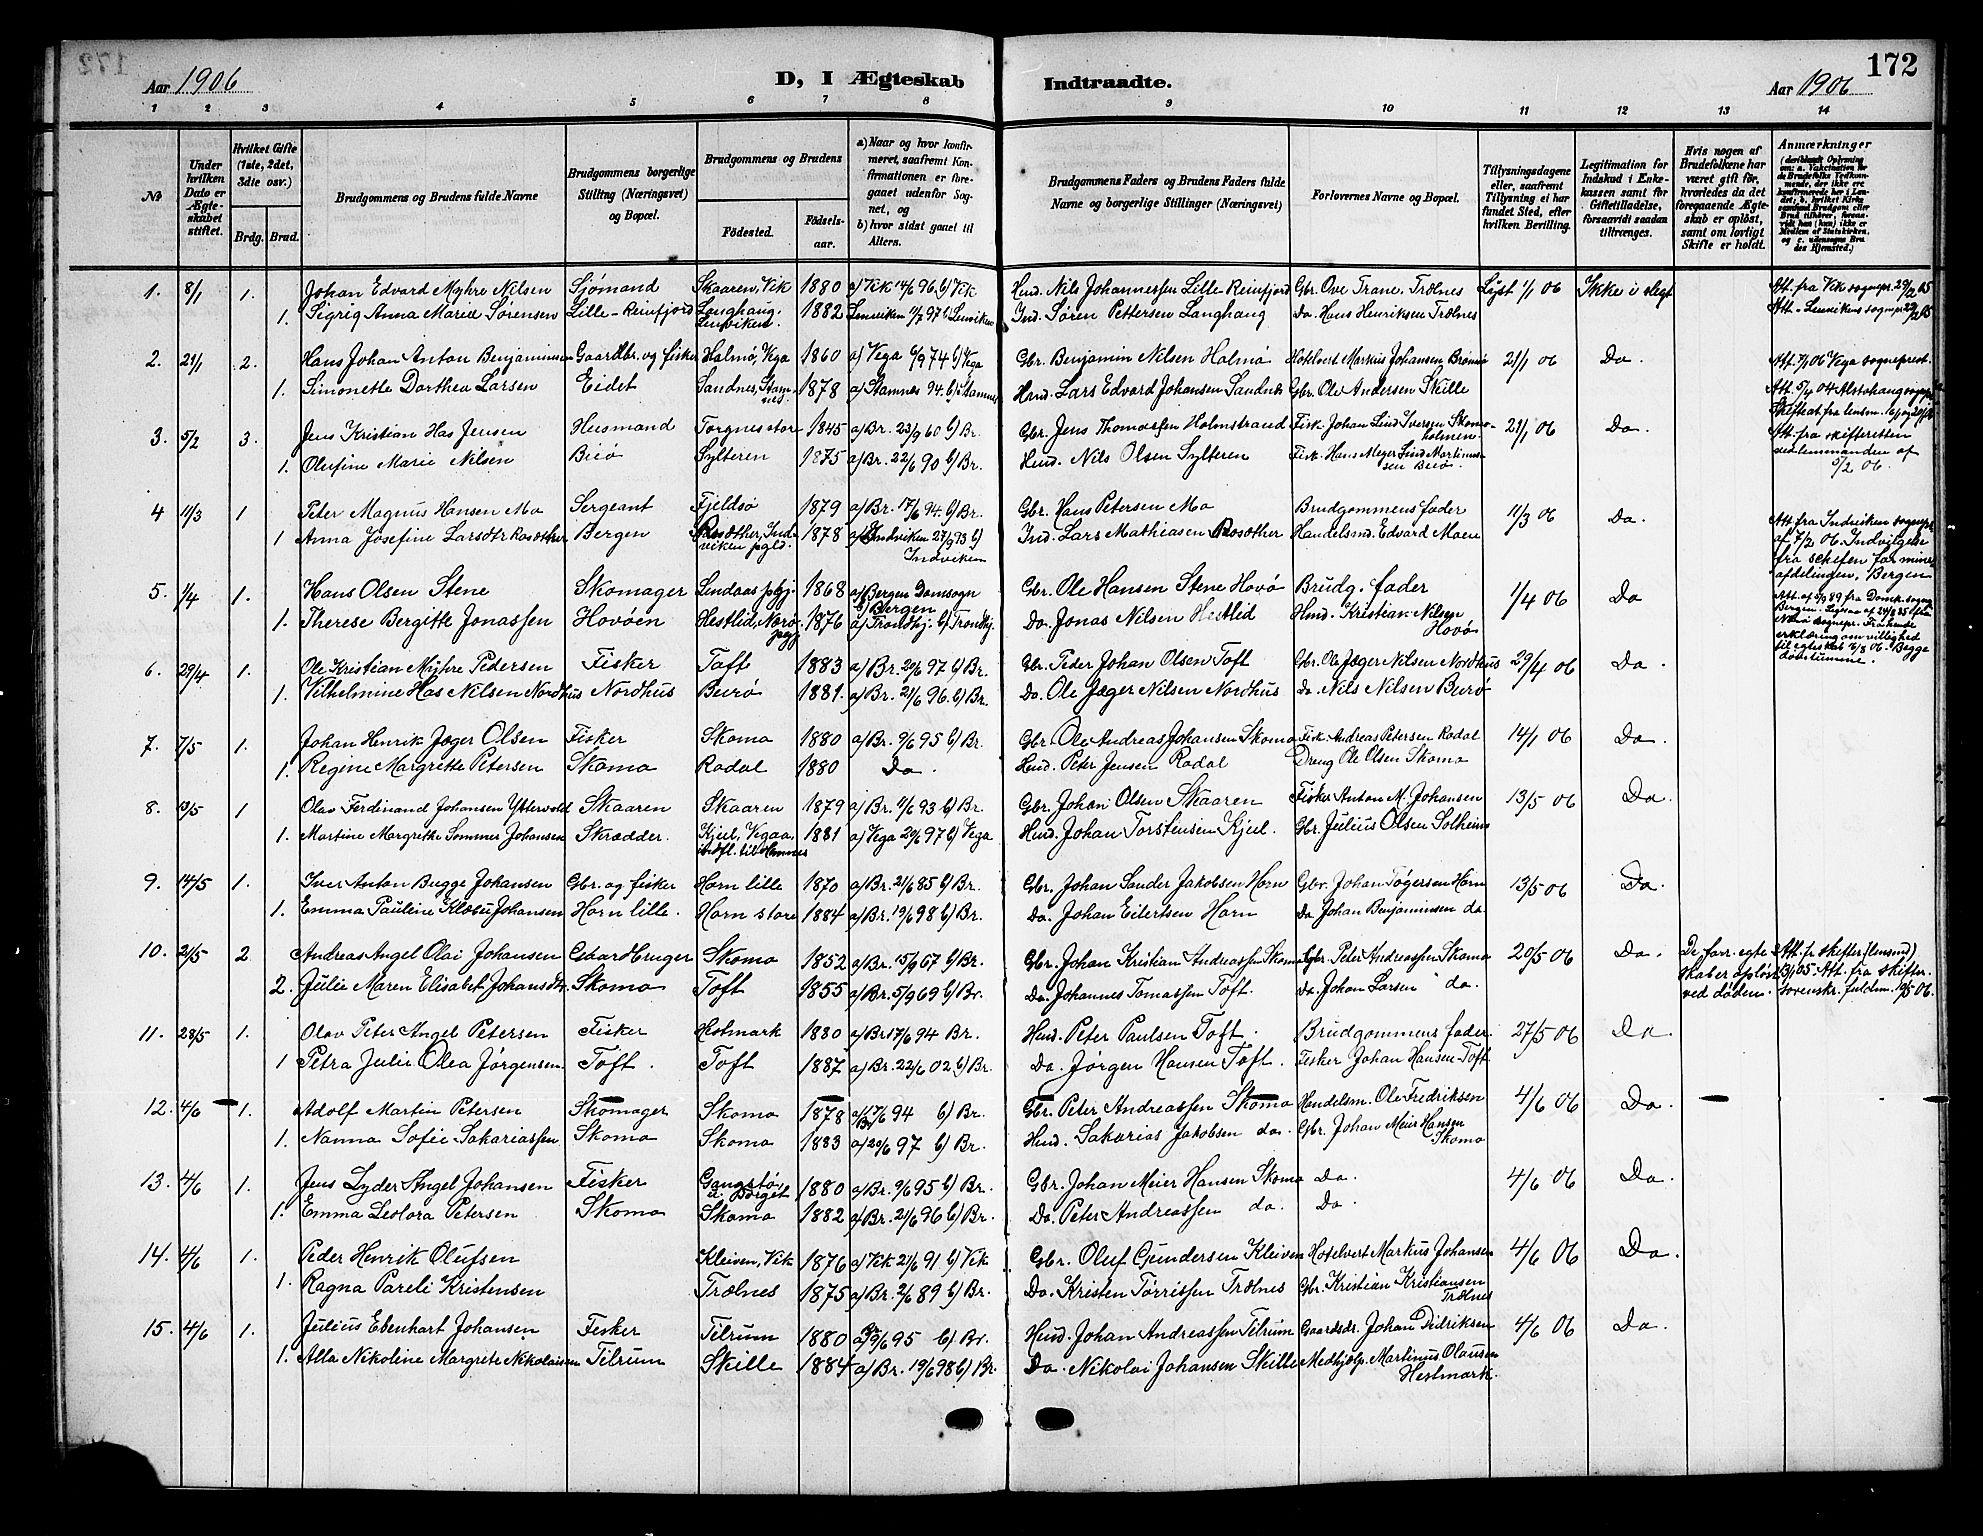 172
Aar 1906
D, I Ægteskab Indtraadte.
Aar 1906
1 2 3 4 5 6 7 8 9 10 11 12 13 14
№
Under hvilken Dato er Ægteskabet stiftet.
Hvilket Gifte (1ste, 2det, 3die osv.)
Brdg. Brud.
Brudgommens og Brudens fulde Navne
Brudgommens borgerlige Stilling (Næringsvei) og Bopæl.
Brudgommens og Brudens
Fødested. Fødselsaar.
a) Naar og hvor konfirmeret, saafremt Konfirmationen er foregaaet udenfor Sognet, og
b) hvor sidst gaaet til Alters.
Brudgommens Faders og Brudens Faders fulde Navne og borgerlige Stillinger (Næringsvei)
Forlovernes Navne og Bopæl.
Tillysningsdagene eller, saafremt Tillysning ei har fundet Sted, efter hvilken Bevilling.
Legitimation for Indskud i Enkekassen samt for Giftetilladelse, forsaavidt saadan tiltrænges.
Hvis nogen af Brudefolkene har været gift før, hvorledes da det foregaaende Ægteskab er opløst, samt om lovligt Skifte er holdt.
Anmærkninger
1. 8/1 1. Johan Edvard Myhre Nilsen Sjømand Skaaren, Vik 1880 a) Vik 14/6 96. b) Vik Hmd. Nils Johannessen Lille-Reinfjord Gbr. Ove Trane, Trælnes Lyst 1/1 06 Ikke i slegt Att. fra Vik sognepr.
1. Sigrig Anna Marie Sørensen Lille-Reinfjord Langhaug, Lenviken. 1882 Lenviken 97 b) Lenviken Ind. Søren Pettersen Langhaug Do. Hans Henriksen Trælnes Att. " Lenvikens sognepr.
2. 21/1 2. Hans Johan Anton Benjaminsen Gaardbr. og fisker Halmø, Vega 1860 a) Vega 6/9 74 b) Vega Gbr. Benjamin Nilsen Halmø Hotelvert Markus Johansen Brønnø 21/1 06 Do. Att. 7/1 06 Vega sogneprest
1. Simonette Dorthea Larsen Eidet Sandnes, Stamnes. 1878 a) Stamnes 94. b) Stamnes Hmd. Lars Edvard Johansen Sandnes Gbr. Ole Andersen Skille Att. 5/4 04 Alstohaug sognepr.
3. 5/2 3. Jens Kristian Has Jensen Husmand Torgnes store 1845 a) Br. 23/9 60 b) Br. Gbr. Jens Thomassen Holmstrand Fisk. Johan Lind Iversen Skomoholmen 21/1 06 Do. Att. fra skifteretten
1. Olufine Marie Nilsen Buø Sylteren 1875 a) Br. 22/6 90 b) Br. Hmd. Nils Olsen Sylteren Fisk. Hans Meyer Lind Martinussen ved lensmanden af 5/2 06.
4 11/3 1 Peter Magnus Hansen Mo Sergeant Fjeldsø 1879 a) Br. 17/6 94. b) Br. Gbr. Hans Petersen Mo Brudgommens fader 11/3 06 Do. Att. fra Indviken sognepr.
1 Anna Josefine Larsdtr Rosother Bergen Rosother, Indviken pgld. 1878 a) Indviken 27/9 93 b) Indviken Ind. Lars Mathiasen Rosother Handelsmd. Edvard Moen af 7/2 06. Indvilgelse fra sckefen for mineafdelingen, Bergen
5. 1/4 1. Hans Olsen Stene Skomager Lindaas pgj. 1868 a) Bergen Domsogn b) Bergen Gbr. Ole Hansen Stene Hovø Brudg. fader 1/4 06 Do
1. Therese Bergitte Jonassen Hovøen Hestlid, Nærø pgj. 1876 a) Trondhj. b) Trondhj. Do. Jonas Nilsen Hestlid Hmd. Kristian Nilsen Hovø
6. 29/4 1. Ole Kristian Myhre Pedersen Fisker Toft 1883 a) Br. 20/6 97 b) Br. Gbr. Peder Johan Olsen Toft Gbr. Ole Jæger Nilsen Nordhus 29/4 06 Do. Begge døvstumme.
1. Vilhelmine Has Nilsen Nordhus Nordhus Burø 1881. a) Br. 21/6 96. b) Br. Do. Ole Jæger Nilsen Nordhus Do. Nils Nilsen Burø
7. 7/5 1. Johan Henrik Jæger Olsen Fisker Skomo 1880 a) Br. 9/6 95 b) Br. Gbr. Ole Andreas Johansen Skomo Fisk. Andreas Petersen Rodal 14/1 06 Do.
1. Regine Margrette Petersen Skomo Rodal 1880 Do. Hmd. Peter Jensen Rodal Dreng Ole Olsen Skomo
8. 13/5 1 Olav Ferdinand Johansen Yttervold Skaaren Skaaren 1879 a) Br. 11/6 93 b) Br. Gbr. Johan Olsen Skaaren Fisker Anton M. Johansen 13/5 06 Do.
1. Martine Margrethe Sommer Johansen Skrædder. Kjul, Vegaa, indfl. til Hamnes 1881 a) Vega 20/6 97 b) Vega Hmd. Johan Torstensen Kjul. Gbr. Julius Olsen Solheim
9. 14/5 1. Iver Anton Bugge Johansen Gbr. og fisker Horn lille 1870 a) Br. 21/6 85 b) Br. Gbr. Johan Sander Jakobsen Horn Gbr. Johan Tøgersen Horn 13/5 06 Do.
1. Emma Pauline Klæbu Johansen Horn lille. Horn store 1884 a) Br. 19/6 98 b) Br. Do. Johan Eilertsen Horn Do. Johan Benjaminsen do.
10. 21/5 2 Andreas Angel Olai Johansen Gaardbruger Skomo 1852 a) Br. 15/9 67 b) Br. Gbr. Johan Kristian Andreassen Skomo Gbr. Peter Andreassen Skomo 20/5 06 Do. De forr. egteskaber opløst ved døden. Att. fr. skifter (lensmd)
2. Julie Maren Elisabet Johansdtr. Skomo Toft 1855 a) Br. 5/9 69 b) Br. Do. Johannes Tomassen Toft. Do. Johan Larsen do. Att. fra skifter. sorenskr. fuldm. 19/5 06.
11. 28/5 1. Olav Peter Angel Petersen Fisker Hestmark 1880 a) Br 17/6 94 Br. Hmd. Peter Paulsen Toft. Brudgommens fader. 27/5 06 Do
1 Petra Julie Olea Jørgensen Toft. Toft 1887 a) Br. 22/6 02 b) Br. Do. Jørgen Hansen Toft. Fisker Johan Hansen Toft
12. 4/6 1. Adolf Martin Petersen Skomager Skomo 1878 a) Br 17/6 94 b) Br. Gbr. Peter Andreassen Skomo Handelsm. Ole Fredriksen 4/6 06 Do.
1. Nanna Sofie Sakariassen Skomo Skomo 1883 a) 20/6 97 b) Br. Hmd. Sakarias Jakobsen do. Gbr. Johan Meier Hansen Skomo
13. 4/6 1. Jens Lyder Angel Johansen Fisker Gangstø, u. Borget 1880 a) Br. 9/6 95 b) Br. Gbr. Johan Meier Hansen Skomo Do. 4/6 06 Do.
1. Emma Leolora Petersen Skomo Skomo 1882 a) Br. 21/6 96 b) Br. Do. Peter Andreassen do. Do.
14. 4/6 1. Peder Henrik Olufsen Kleiven, Vik 1876 a) Vik 21/6 91 b) Vik Gbr. Oluf Gundersen Kleiven Hotelvert Markus Johansen 4/6 06 Do.
1. Ragna Pareli Kristensen Trælnes 1875 a) Br. 2/6 89 b) Br. Do. Kristen Tørrissen Trælnes Gbr. Kristian Kristiansen Trælnes
15. 4/6 1. Julius Ebenhart Johansen Fisker Tilrum 1880 a) 9/6 95 b) Br. Hmd. Johan Andreassen Tilrum Gaardsdr. Johan Didriksen 4/6 06 Do.
1. Alla Nikoline Margrete Nikolaisen Tilrum Skille 1884 a) Br. 19/6 98 b) Br. Do. Nikolai Johansen Skille Medhjelp. Martinus Olausen Hestmark.